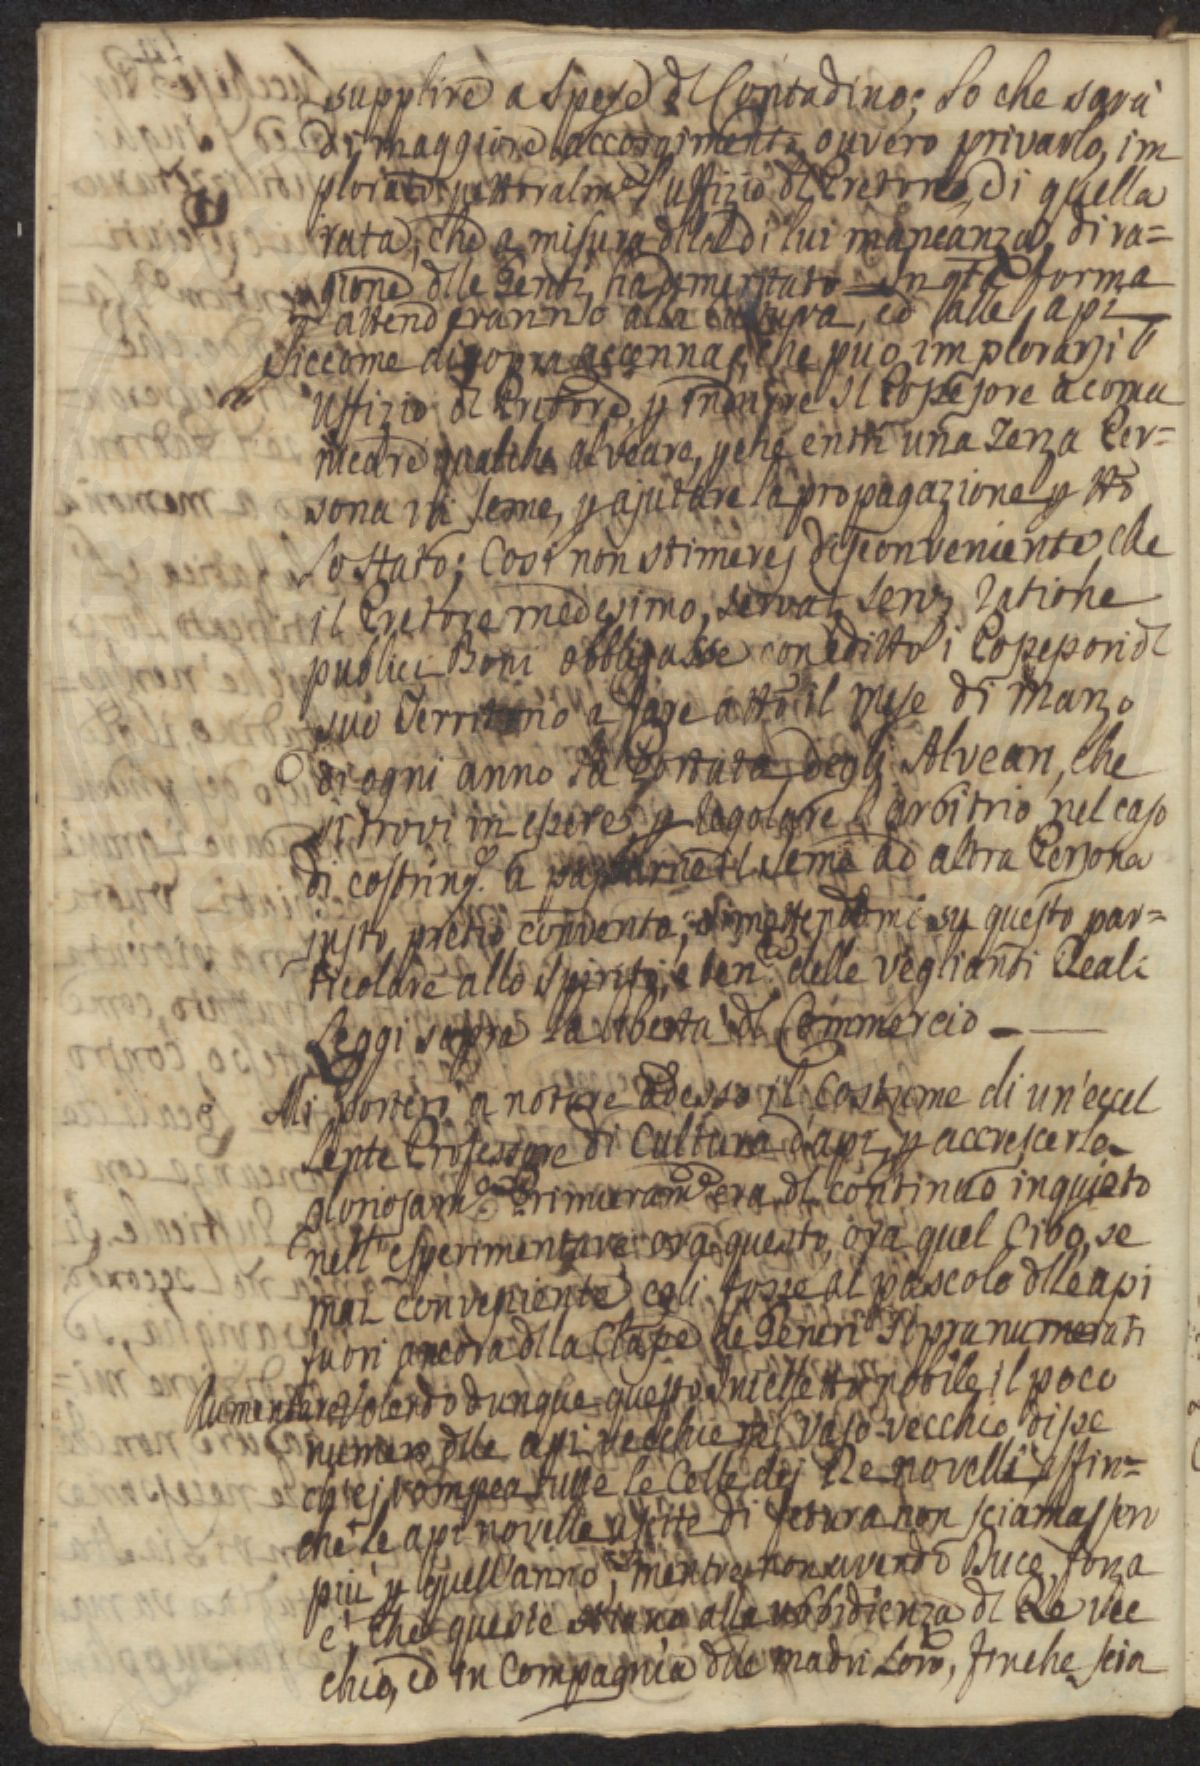 supplire a spese dl Contadino; Lo che sarà
di maggiore accorgimento, ouvero privarlo, im
plorato pettoralm.e l'uffizio dl Pretore, di quella
rata, che a misura dlla di lui mancanza, di ra=
gione dlle Genti ha demeritato. In qta forma
attenderanno alla cultura, ed alle api
Siccome di sopra accennai, che può implorarsi l'
Uffizio dl Pretore, p indurre il Possessore a comu
nicare qualche alveare, p che entri una Terza Per=
sona in seme, p ajutare la propagazione p tto
Lo stato; Così non stimerej disconveniente che
il Pretore medesimo, servat servz ratione
publici Boni obbligasse con editto i Possessori dl
suo Territorio a fare a tto il mese di Marzo
di ogni anno la Portata degli Alveari, che
si trovi in essere, p regolare l'arbitrio nel caso
di costring.e a passarne il seme ad altra Persona
justo pretio conventa; rimettendomi sù questo par=
ticolare allo spirito, e ten.re delle veglianti Reali
Leggi sopra la libertà dl Commercio
Mi porterò a notare adesso il costume di un'eccel
lente Professore di Cultura d'api, p accrescerle
gloriosam.e Primieram.e era dl continuo inquieto
nell'esperimentare ora questo, ora quel Cibo, se
mai conveniente egli fosse al pascolo dlle api
fuori ancora dlla Classe de Generi sopranumerati
Aumentare Volendo dunque questo Intelletto nobile il poco
numero dlle api vecchie nel vaso vecchio, disse
ch'ej rompea tutte le Celle dej Re novelli, affin=
chè le api novelle uscite di fetura non sciamassero
più p quell'anno, mentre non avendo Duce, forza
è, che queste stiano alla ubbidienza dl Re vec
chio, ed in Compagnia dlle madri loro, finche scia